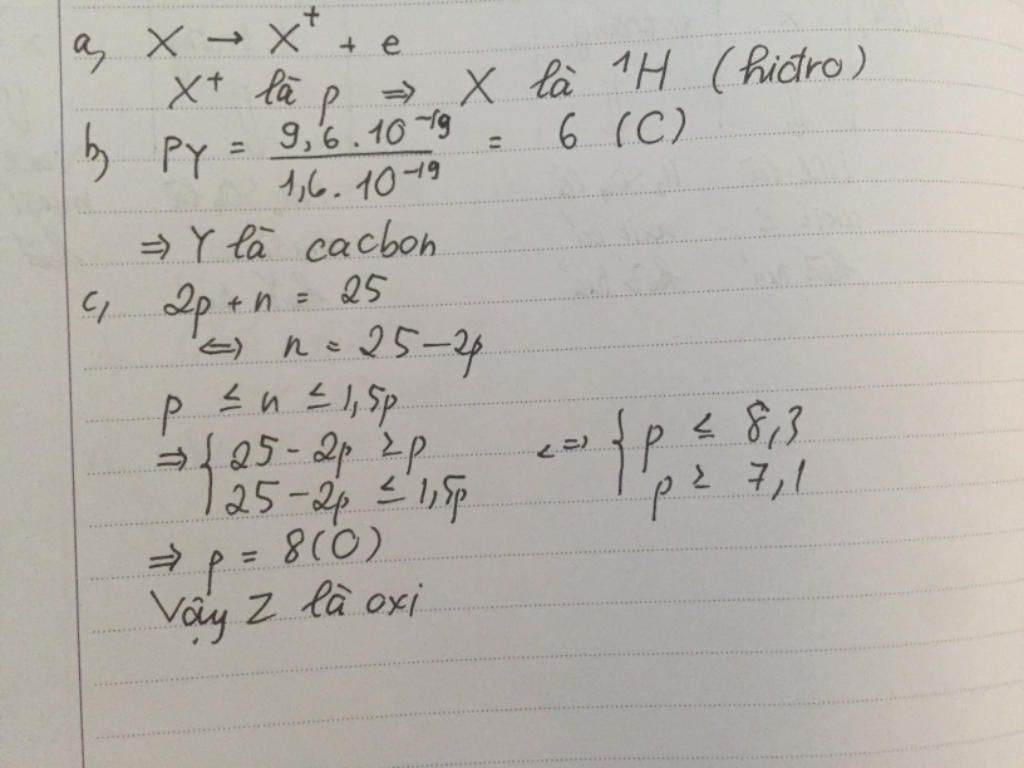 a, X → X⁺ + e
X⁺ là p ⇒ X là ¹H (hiđro)
b, PY = 9,6.10⁻¹⁹ / 1,6.10⁻¹⁹ = 6 (C)
⇒ Y là cacbon
c, 2p + n = 25
⇔ n = 25 - 2p
p ≤ n ≤ 1,5p
⇒ { 25 - 2p ≥ p <=> { p ≤ 8,3
25 - 2p ≤ 1,5p p ≥ 7,1
⇒ p = 8 (O)
Vậy Z là oxi